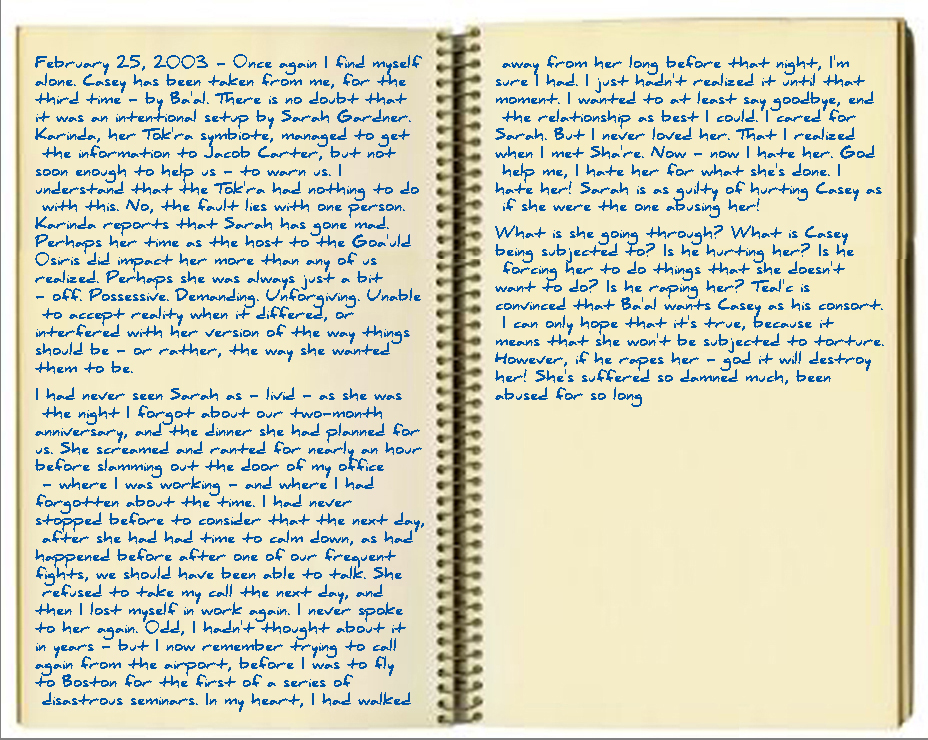 February 25, 2003 – Once again I find myself
alone. Casey has been taken from me, for the
third time – by Ba'al. There is no doubt that
it was an intentional setup by Sarah Gardner.
Karinda, her Tok'ra symbiote, managed to get
the information to Jacob Carter, but not
soon enough to help us – to warn us. I
understand that the Tok'ra had nothing to do
with this. No, the fault lies with one person.
Karinda reports that Sarah has gone mad.
Perhaps her time as the host to the Goa'uld
Osiris did impact her more than any of us
realized. Perhaps she was always just a bit
– off. Possessive. Demanding. Unforgiving. Unable
to accept reality when it differed, or
interfered with her version of the way things
should be – or rather, the way she wanted
them to be.
I had never seen Sarah as – livid – as she was
the night I forgot about our two-month
anniversary, and the dinner she had planned for
us. She screamed and ranted for nearly an hour
before slamming out the door of my office
– where I was working – and where I had
forgotten about the time. I had never
stopped before to consider that the next day,
after she had had time to calm down, as had
happened before after one of our frequent
fights, we should have been able to talk. She
refused to take my call the next day, and
then I lost myself in work again. I never spoke
to her again. Odd, I hadn't thought about it
in years – but I now remember trying to call
again from the airport, before I was to fly
to Boston for the first of a series of
disastrous seminars. In my heart, I had walked
away from her long before that night, I'm
sure I had. I just hadn't realized it until that
moment. I wanted to at least say goodbye, end
the relationship as best I could. I cared for
Sarah. But I never loved her. That I realized
when I met Sha're. Now – now I hate her. God
help me, I hate her for what she's done. I
hate her! Sarah is as guilty of hurting Casey as
if she were the one abusing her!
What is she going through? What is Casey
being subjected to? Is he hurting her? Is he
forcing her to do things that she doesn't
want to do? Is he raping her? Teal'c is
convinced that Ba'al wants Casey as his consort.
I can only hope that it's true, because it
means that she won't be subjected to torture.
However, if he rapes her – god it will destroy
her! She's suffered so damned much, been
abused for so long